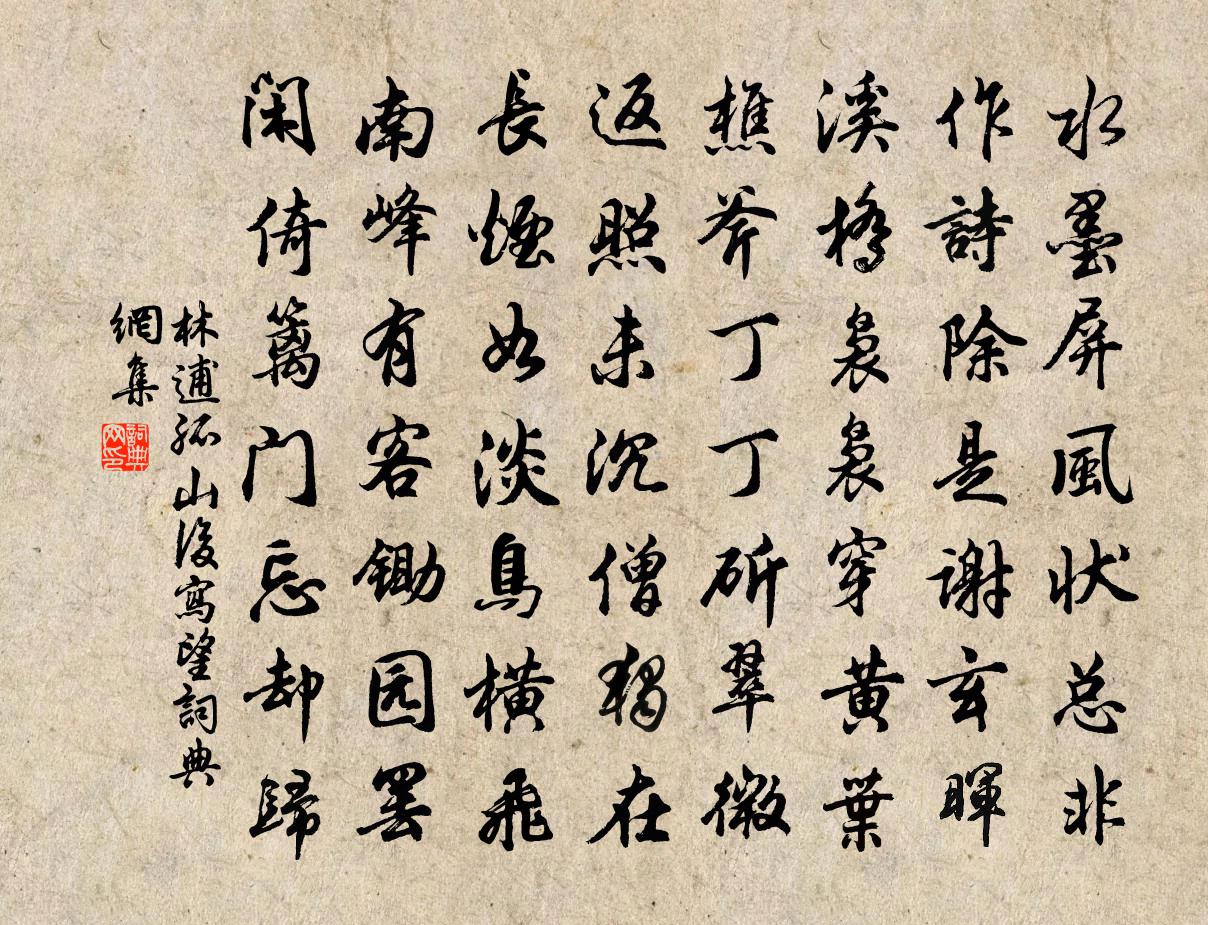 水墨屏風狀总非
作詩除是謝玄暉
溪橋裊裊穿黃葉
樵斧丁丁斫翠微
返照未沉僧獨在
長煙如淡鳥橫飛
南峰有客鋤园罢
闲倚篱门忘却歸
林逋孤山後寫望詞典
網集
詞典網印